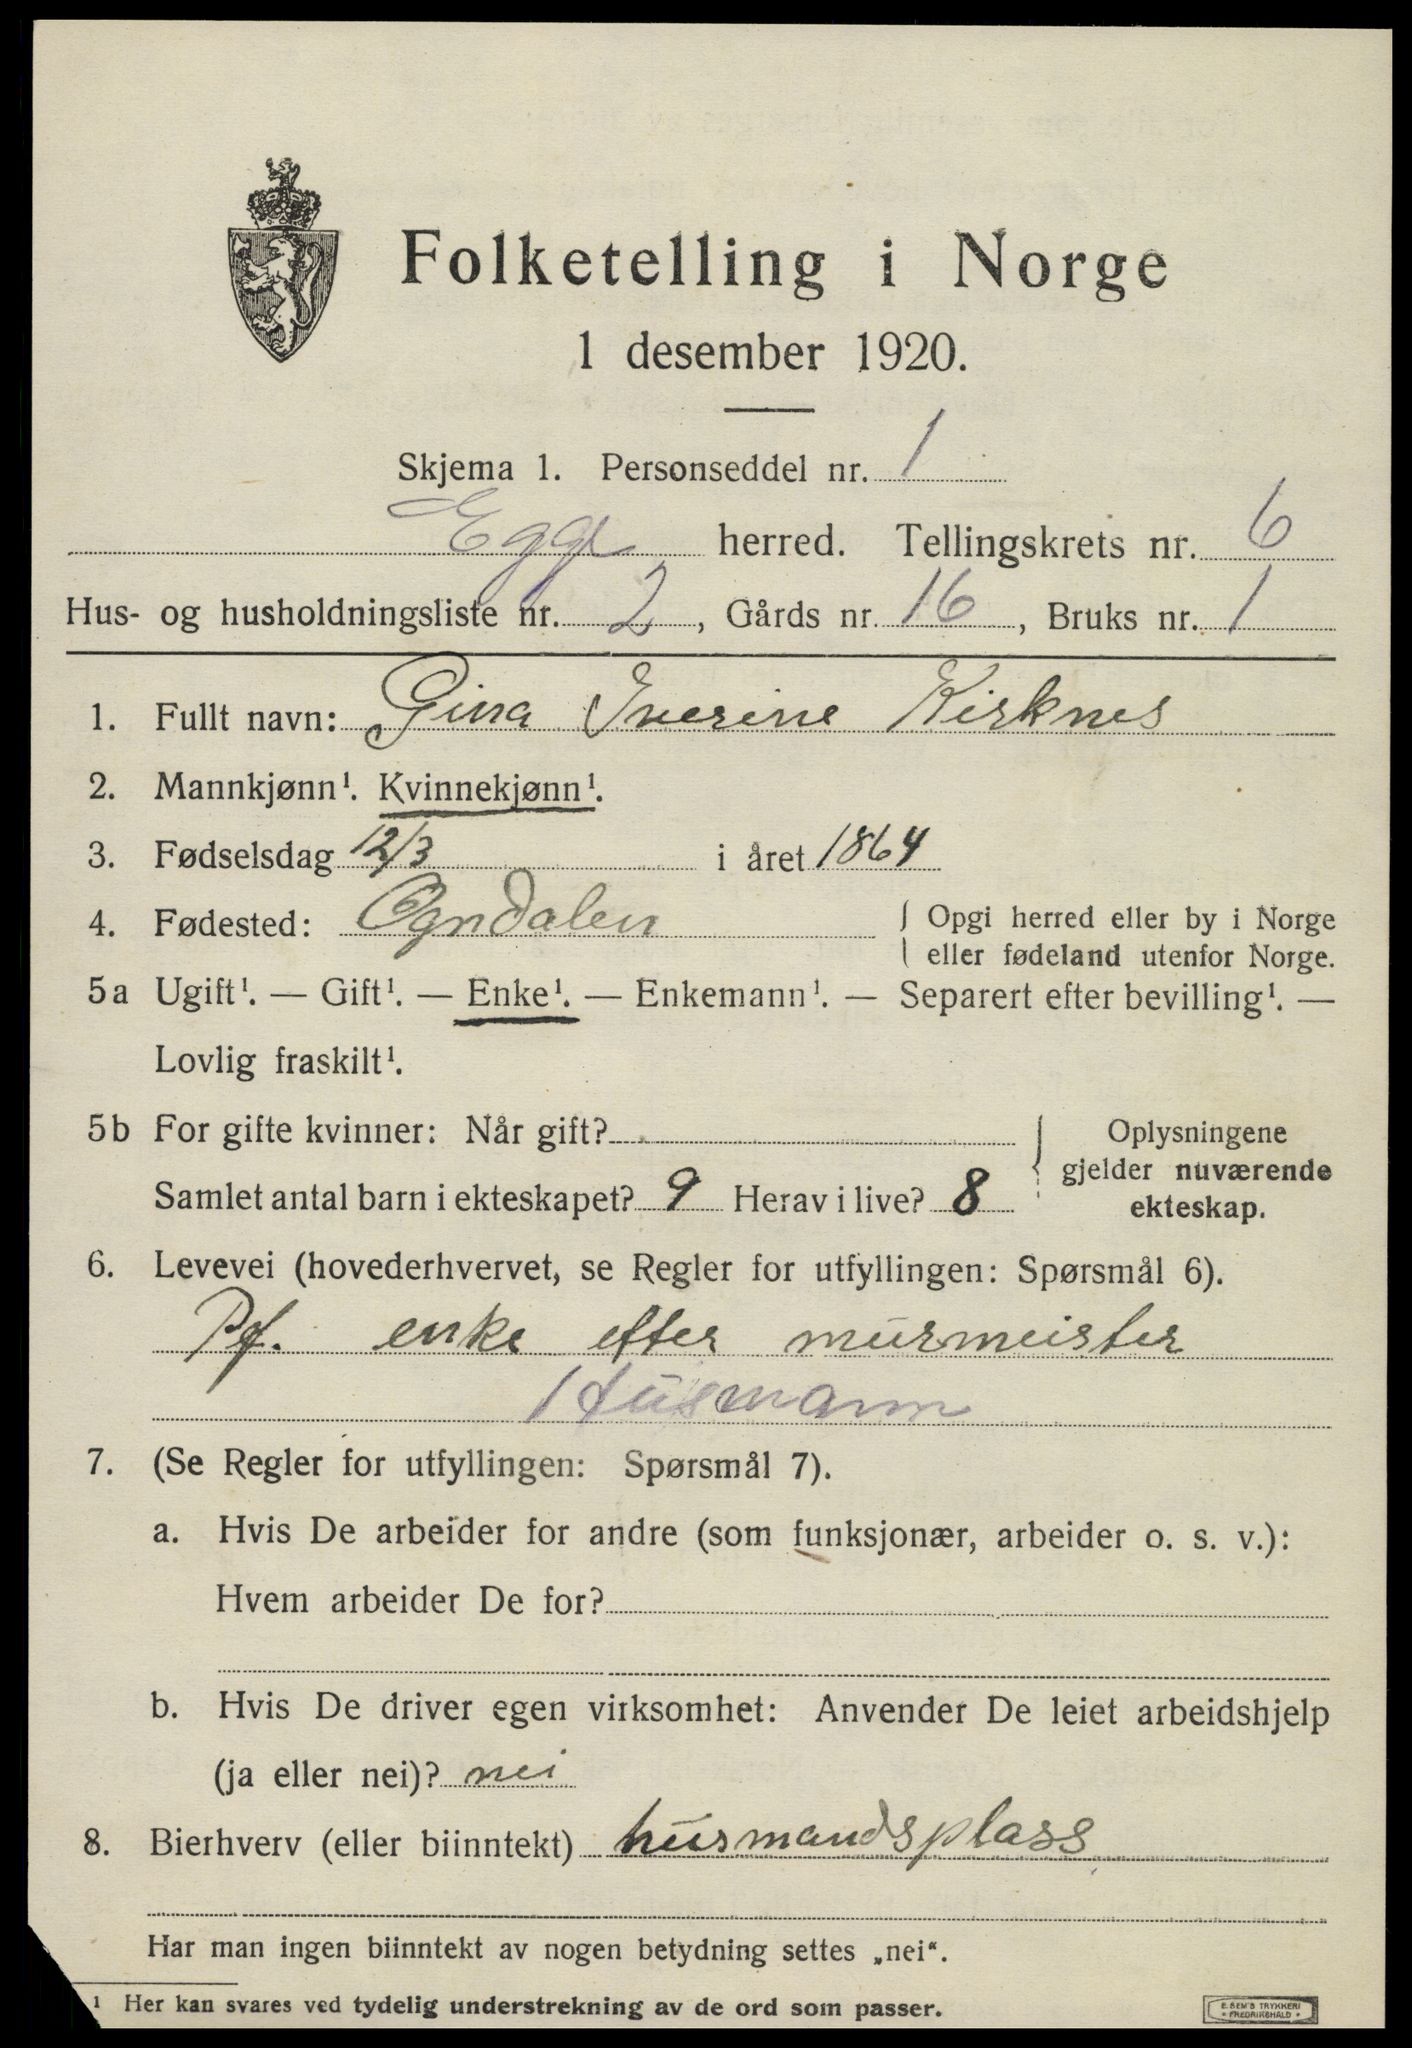 Folketelling i Norge
1 desember 1920.
Skjema 1. Personseddel nr. 1
Egge herred. Tellingskrets nr. 6
Hus- og husholdningsliste nr. 2, Gårds nr. 16, Bruks nr. 1
1. Fullt navn: Gina Iverine Kirknes
2. Mannkjønn¹. Kvinnekjønn¹.
3. Fødselsdag 12/3 i året 1864
4. Fødested: Ogndalen { Opgi herred eller by i Norge
eller fødeland utenfor Norge.
5a Ugift¹. — Gift¹. — Enke¹. — Enkemann¹. — Separert efter bevilling¹. —
Lovlig fraskilt¹.
5b For gifte kvinner: Når gift? Oplysningene
gjelder nuværende
Samlet antal barn i ekteskapet? 9 Herav i live? 8 ekteskap.
6. Levevei (hovederhvervet, se Regler for utfyllingen: Spørsmål 6).
Pf. enke efter murmeister
Husmann
7. (Se Regler for utfyllingen: Spørsmål 7).
a. Hvis De arbeider for andre (som funksjonær, arbeider o. s. v.):
Hvem arbeider De for?
b. Hvis De driver egen virksomhet: Anvender De leiet arbeidshjelp
(ja eller nei)? nei
8. Bierhverv (eller biinntekt) husmandsplass
Har man ingen biinntekt av nogen betydning settes „nei“.
¹ Her kan svares ved tydelig understrekning av de ord som passer.
E. SEM'S TRYKKERI
• FREDRIKSHALD •